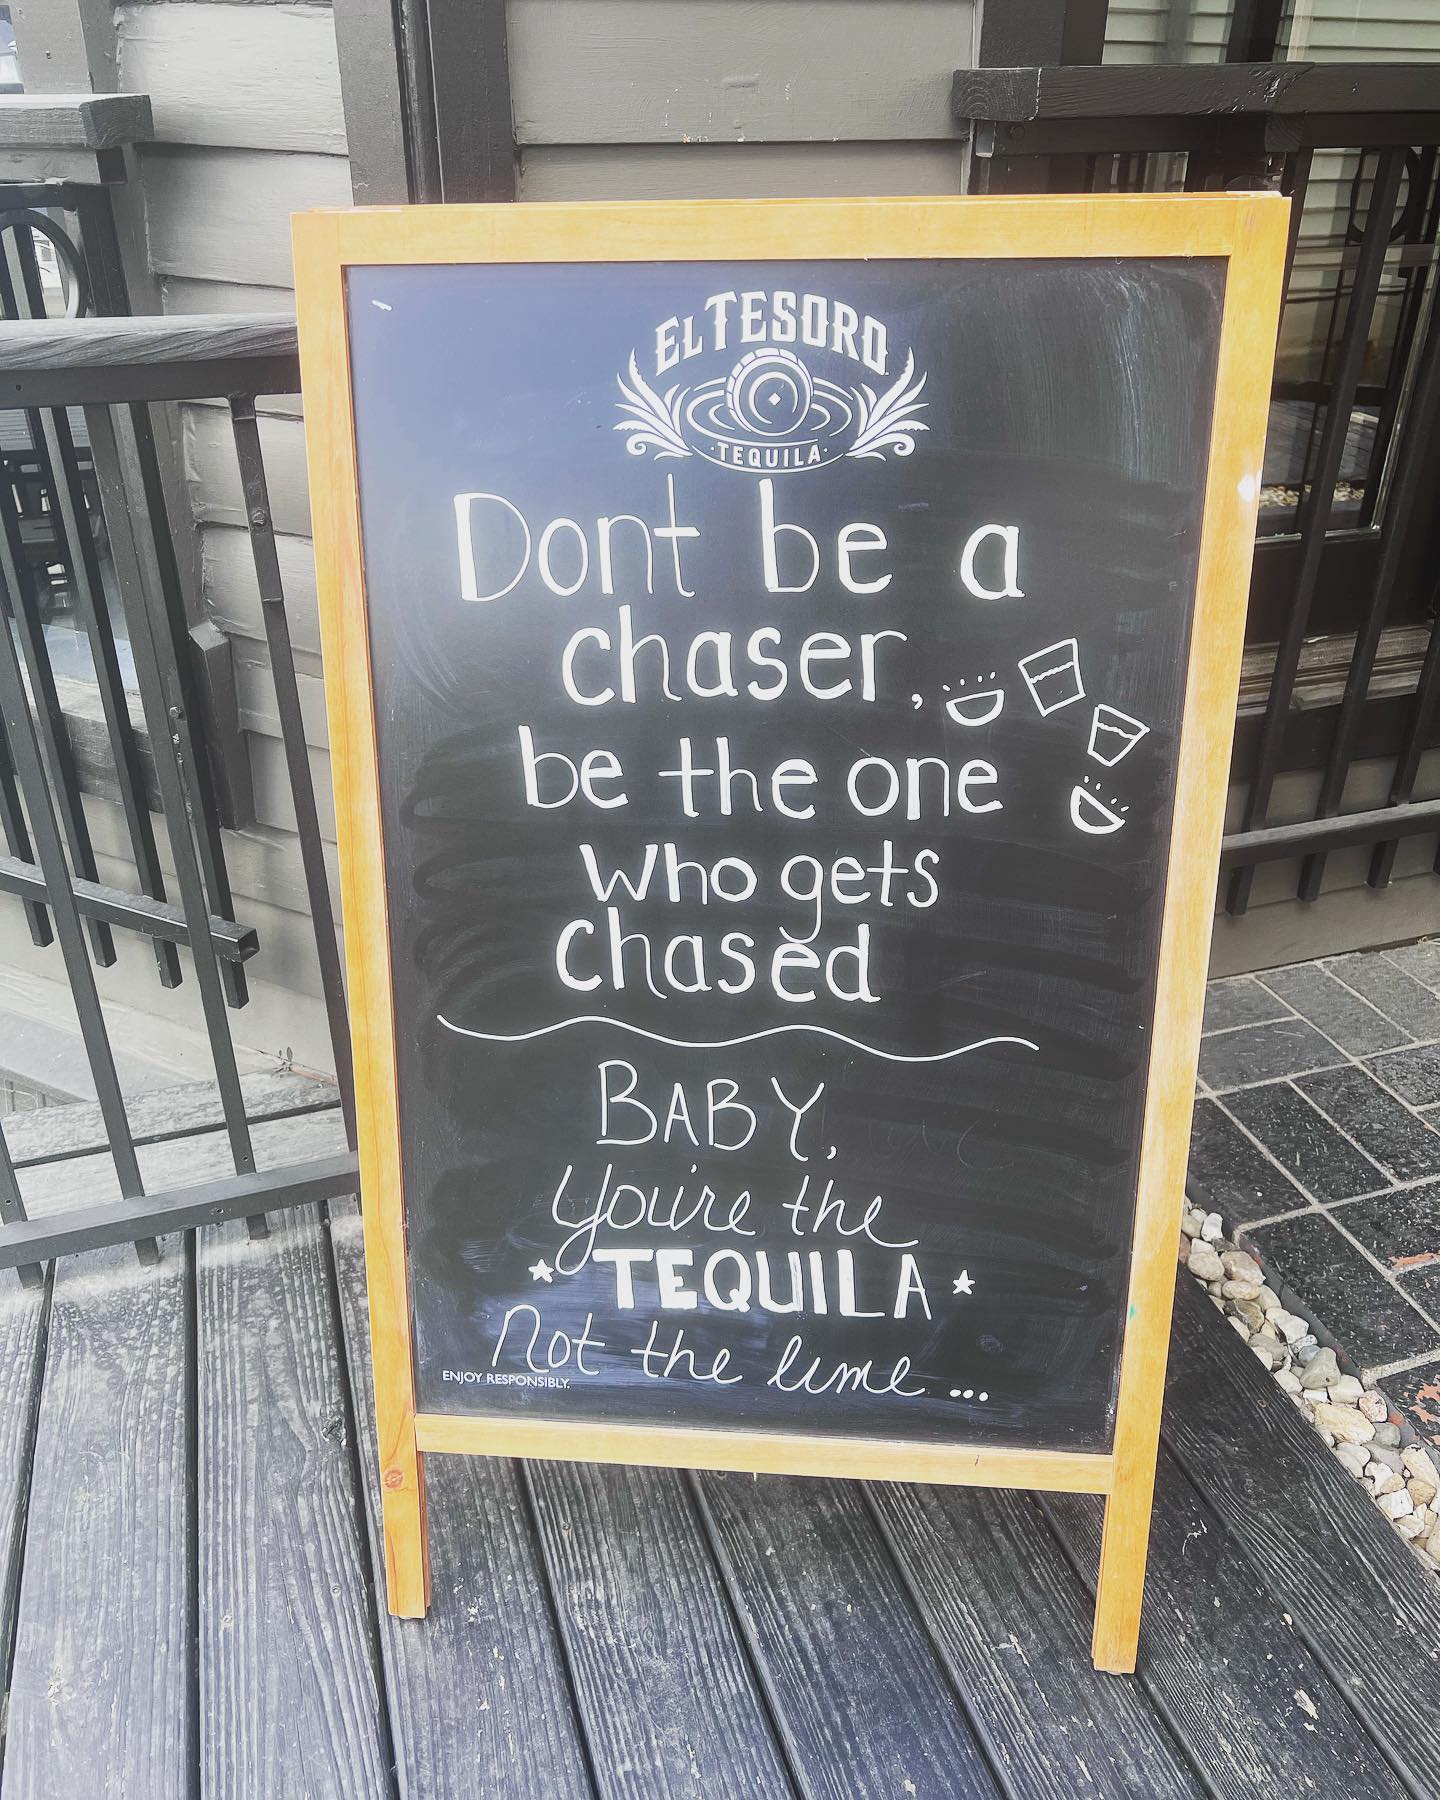 EL TESORO
TEQUILA
Dont be a
chaser,
be the one
who gets
chased
BABY,
You're the
TEQUILA
Not the lime...
ENJOY RESPONSIBLY.